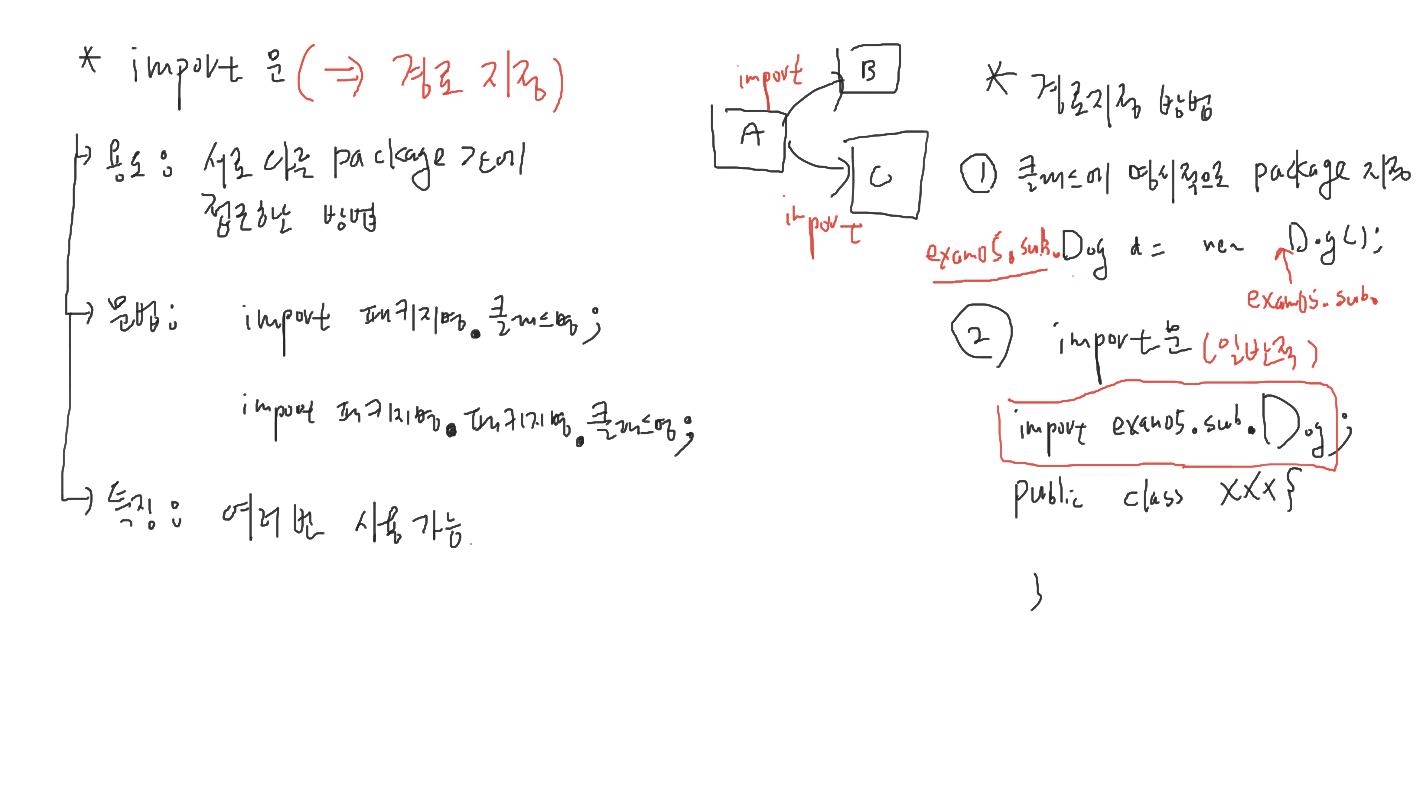 * import 문 (⇒ 경로 지정)
→ 용도 : 서로 다른 package 간에
접근하는 방법
→ 문법 : import 패키지명.클래스명;
import 패키지명.패키지명.클래스명;
→ 특징 : 여러 번 사용 가능.
import
A
B
C
import
* 경로지정 방법
① 클래스에 명시적으로 package 지정
exam05.sub.Dog d = new Dog();
exam05.sub.
② import문 (일반적)
import exam05.sub.Dog;
public class XXX {
}